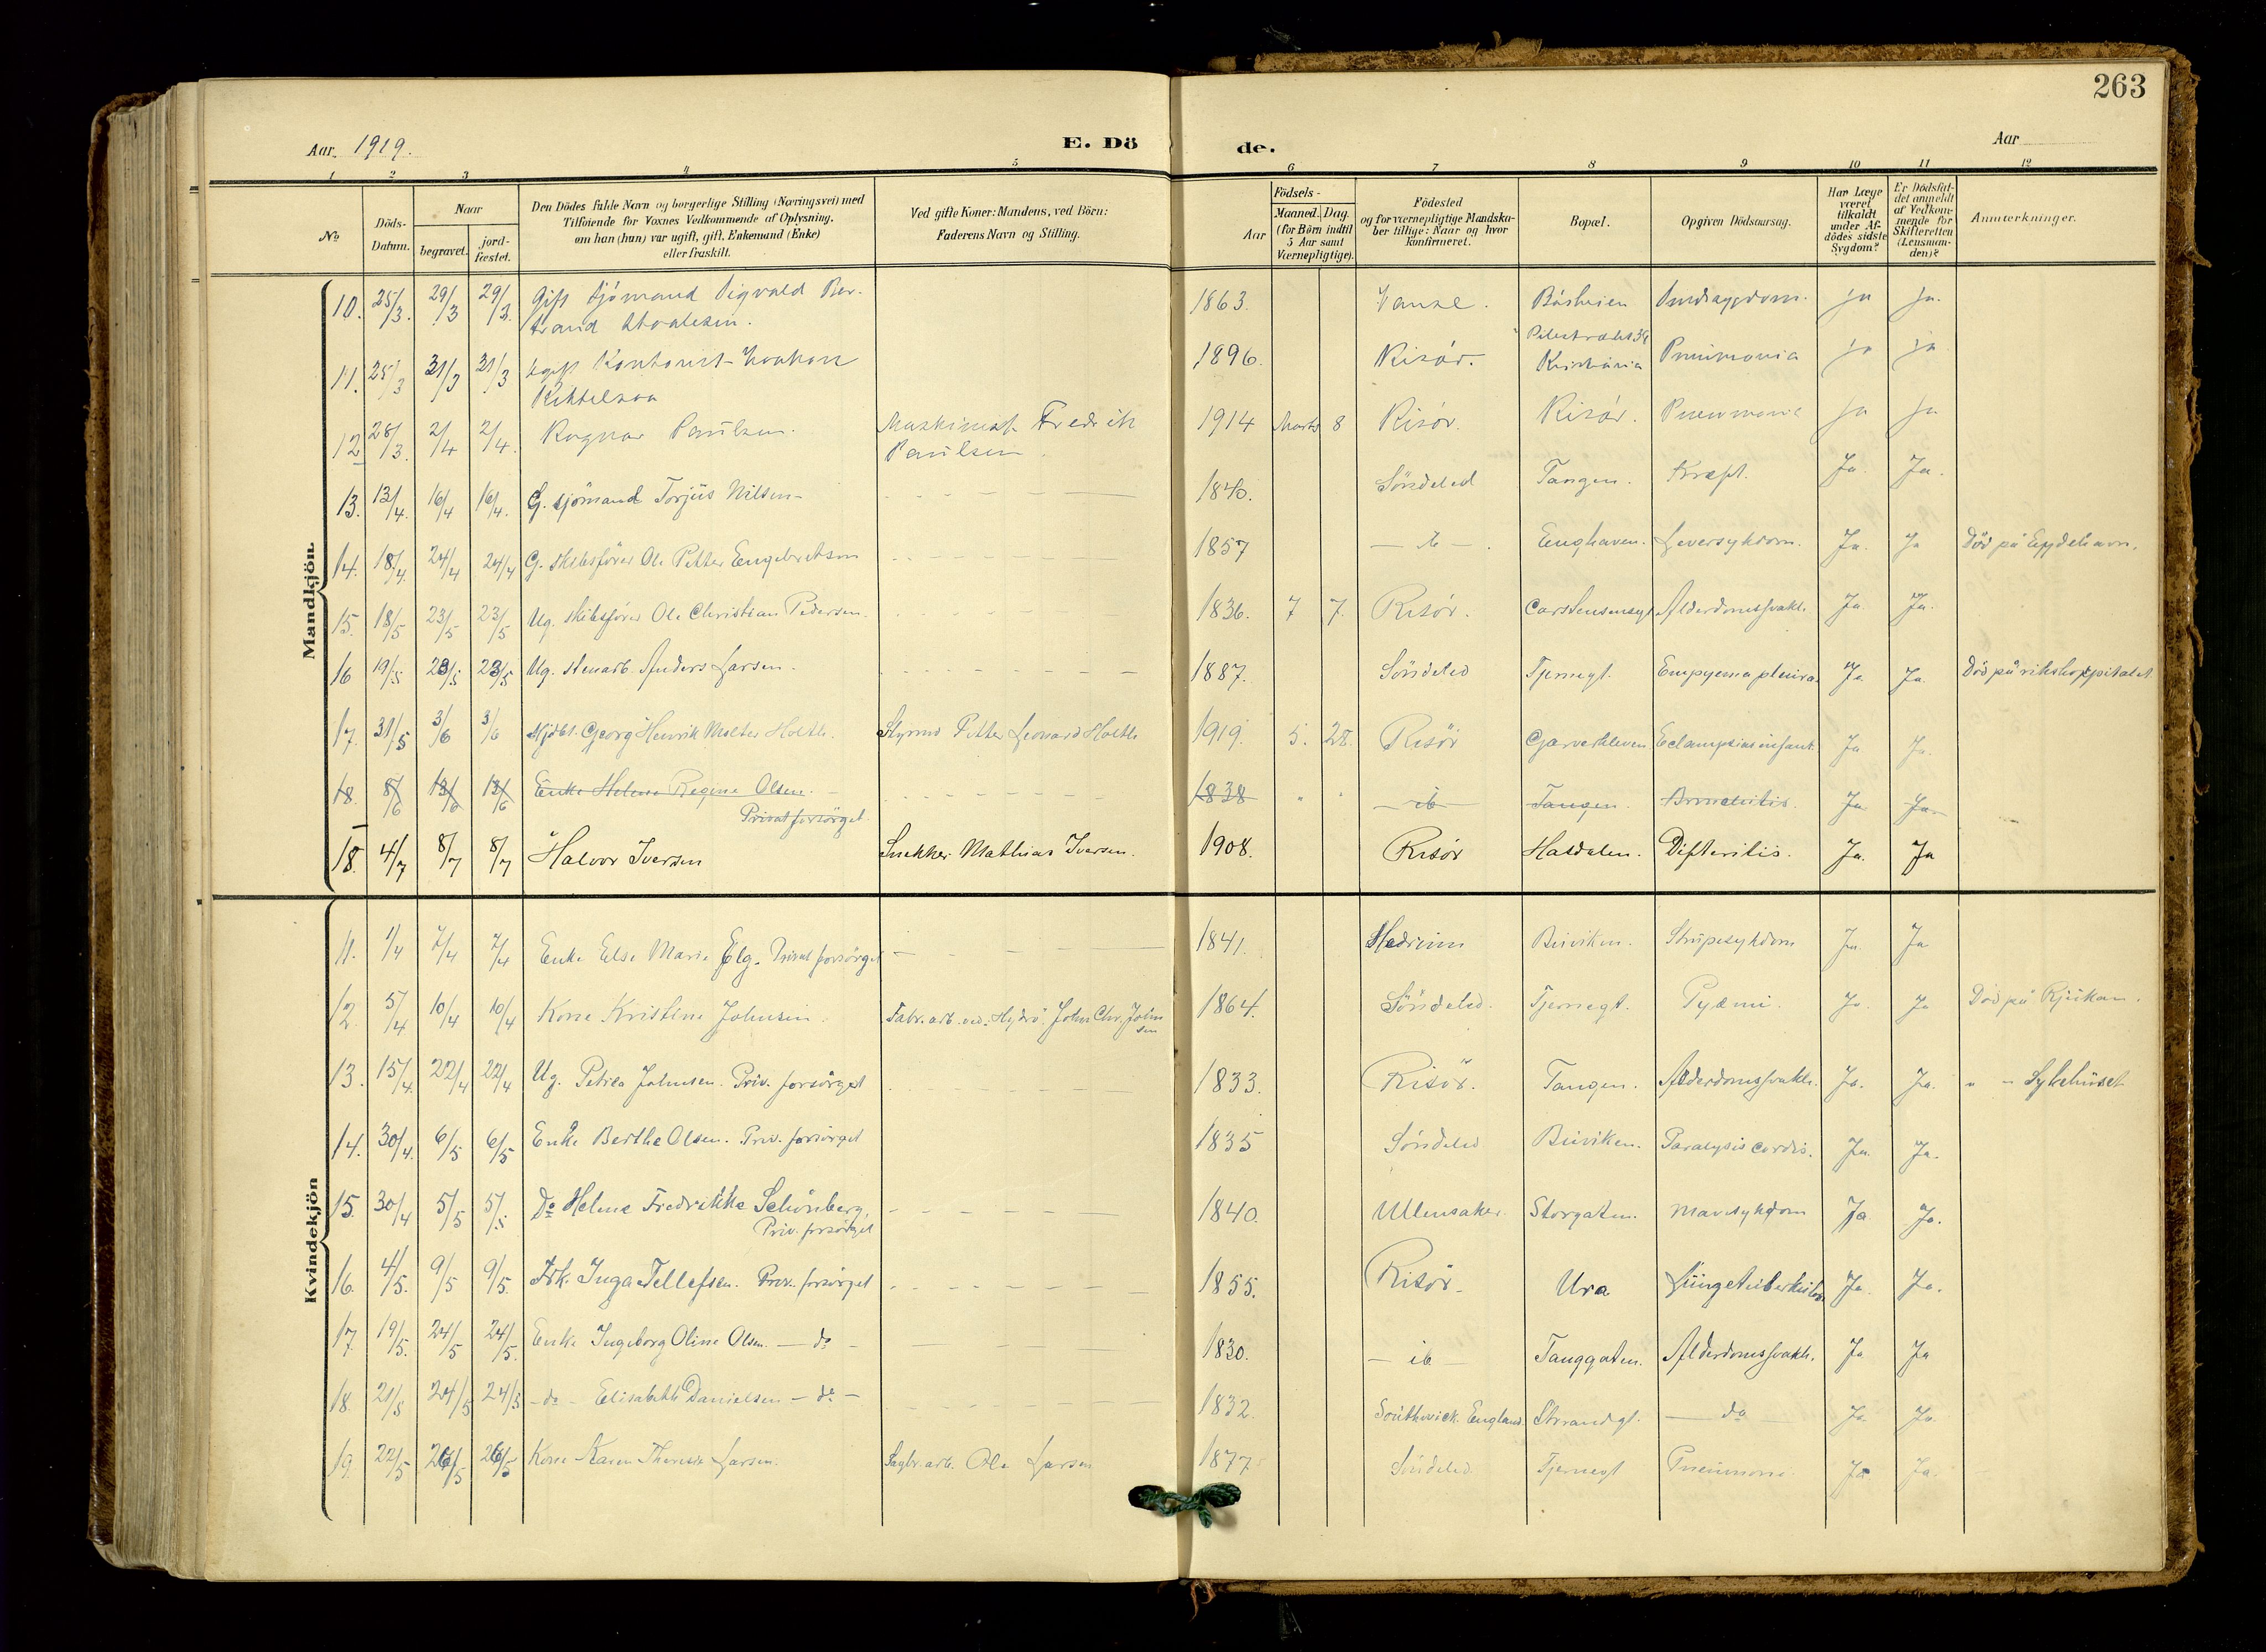 263
Aar 1919.
E. Dö
de.
Aar
1 2 3 4 5 6 7 8 9 10 11 12
No
Döds-Datum.
Naar
begravet.
jord-fæstet.
Den Dödes fulde Navn og borgerlige Stilling (Næringsvei) med
Tilföiende for Voxnes Vedkommende af Oplysning,
om han (hun) var ugift, gift, Enkemand (Enke)
eller fraskilt.
Ved gifte Koner: Mandens, ved Börn:
Faderens Navn og Stilling.
Födsels-
Aar
Maaned. Dag.
(for Börn indtil
5 Aar samt
Værnepligtige).
Födested
og for værnepligtige Mandska-
ber tillige: Naar og hvor
konfirmeret.
Bopæl.
Opgiven Dödsaarsag.
Har Læge
været
tilkaldt
under Af-
dödes sidste
Sygdom?
Er Dödsfal-
det anmeldt
af Vedkom-
mende for
Skifteretten
(Lensman-
den)?
Anmærkninger.
Mandkjön.
10. 25/3. 29/3 29/3. Gift sjömand Sigvald Ber- 1863. Vanse. Båsheien ja ja.
trand
11. 25/3 31/3 31/3 Kontorist Haakon 1896. Risör. Kristiania Pneumonia ja ja
Kittelsen
12 28/3. 2/4 2/4. Ragnar Paulsen. Maskinist Fredrik 1914 Marts 8 Risör. Risör. Pneumonie ja ja
Paulsen.
13. 13/4. 16/4 16/4. G. sjömand Torjus Nilsen - 1840. Söndeled Tangen. Kræft. Ja. Ja.
14. 18/4. 24/4 24/4 G. skibsförer Ole Petter Engebretsen 1857 - ib - . Enghaven. Leversykdom. Ja. Ja Död på Eydehavn.
15. 18/5 23/5 23/5 Ug. skibsförer Ole Christian Pedersen. 1836. 7 7. Risör. Carstensensgt Alderdomssvakh. Ja. Ja.
16 19/5 23/5 23/5 Ug. stenarb. Anders Larsen. 1887. Söndeled Tjernegt. Empyema pleura. Ja Ja. Död på rikshospitalet
17. 31/5 3/6 3/6 Hjdbt. Georg Henrik Molter Holth. Styrmd Petter Leonard Holth 1919. 5. 28. Risör Garverkleven Eclampsias infant. Ja Ja.
18. 8/6 13/6 13/6 Enke Helene Regine Olsen. 1838 " " - ib - Tangen. Bronchitis. Ja Ja.
Privat forsörget.
18. 4/7 8/7 8/7 Halvor Iversen Snekker Mathias Iversen. 1908. Risör Hasdalen. Difteritis. Ja. Ja
Kvindekjön
11. 1/4 7/4 7/4 Enke Else Marie Elg. Privat forsörget 1841. Hedrum Buviken. Strupesykdom Ja. Ja
12. 5/4 10/4 10/4 Kone Kristine Johnsen. Fabr. arb. ved. Hydro. John Chr. John 1864. Söndeled. Tjernegt. Pyæmi. Ja. Ja Död på Rjukan.
sen
13. 15/4. 22/4 22/4 Ug. Petrea Johnsen. Priv. forsörget 1833. Risör. Tangen. Alderdomssvakh. Ja. Ja. " " Sykehuset
14. 30/4. 6/5 6/5 Enke Berthe Olsen. Priv. forsörget 1835 Söndeled Buviken. Paralysis cordis. Ja. Ja.
15. 30/4 5/5 5/5 Do Helene Fredrikke Schönberg, 1840. Ullensaker. Storgaten. Mavesykdom Ja. Ja.
Priv. forsörget
16. 4/5. 9/5 9/5. Frk. Inga Tellefsen. Priv. forsörget 1855. Risör. Ura Lungetuberkulose Ja. Ja.
17. 19/5. 24/5 24/5. Enke Ingeborg Oline Olsen. - do - 1830. - ib - Tanggaten. Alderdomssvakh. Ja Ja
18. 21/5 24/5 24/5 - do - Elisabeth Danielsen - do - 1832. Southwick England Strandgt. - do - Ja. Ja.
19. 22/5 26/5 26/5 Kone Karen Therese Larsen. Sagbr. arb. Ole Larsen 1877. Söndeled. Tjernegt Pneumoni. Ja Ja.